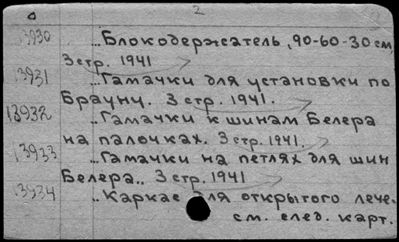 2
13930 ..Блокодержатель, 90-60-30 см,
3 стр. 1941
13931 ..Гамачки для установки по
Брауну. 3 стр. 1941.
13932 ..Гамачки к шинам Белера
на палочках. 3 стр. 1941.
13933 ..Гамачки на петлях для шин
Белера.. 3 стр. 1941
13934 ..Каркас для открытого лече-
см. след. карт.